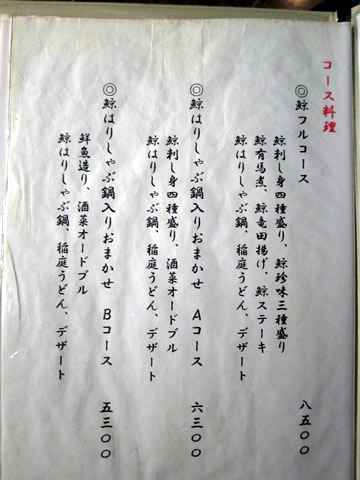 コース料理
◎鯨フルコース 八五〇〇
鯨刺し身四種盛り、鯨珍味三種盛り
鯨有馬煮、鯨竜田揚げ、鯨ステーキ
鯨はりしゃぶ鍋、稲庭うどん、デザート
◎鯨はりしゃぶ鍋入りおまかせ Aコース 六三〇〇
鯨刺し身四種盛り、酒菜オードブル
鯨はりしゃぶ鍋、稲庭うどん、デザート
◎鯨はりしゃぶ鍋入りおまかせ Bコース 五三〇〇
鮮魚造り、酒菜オードブル
鯨はりしゃぶ鍋、稲庭うどん、デザート